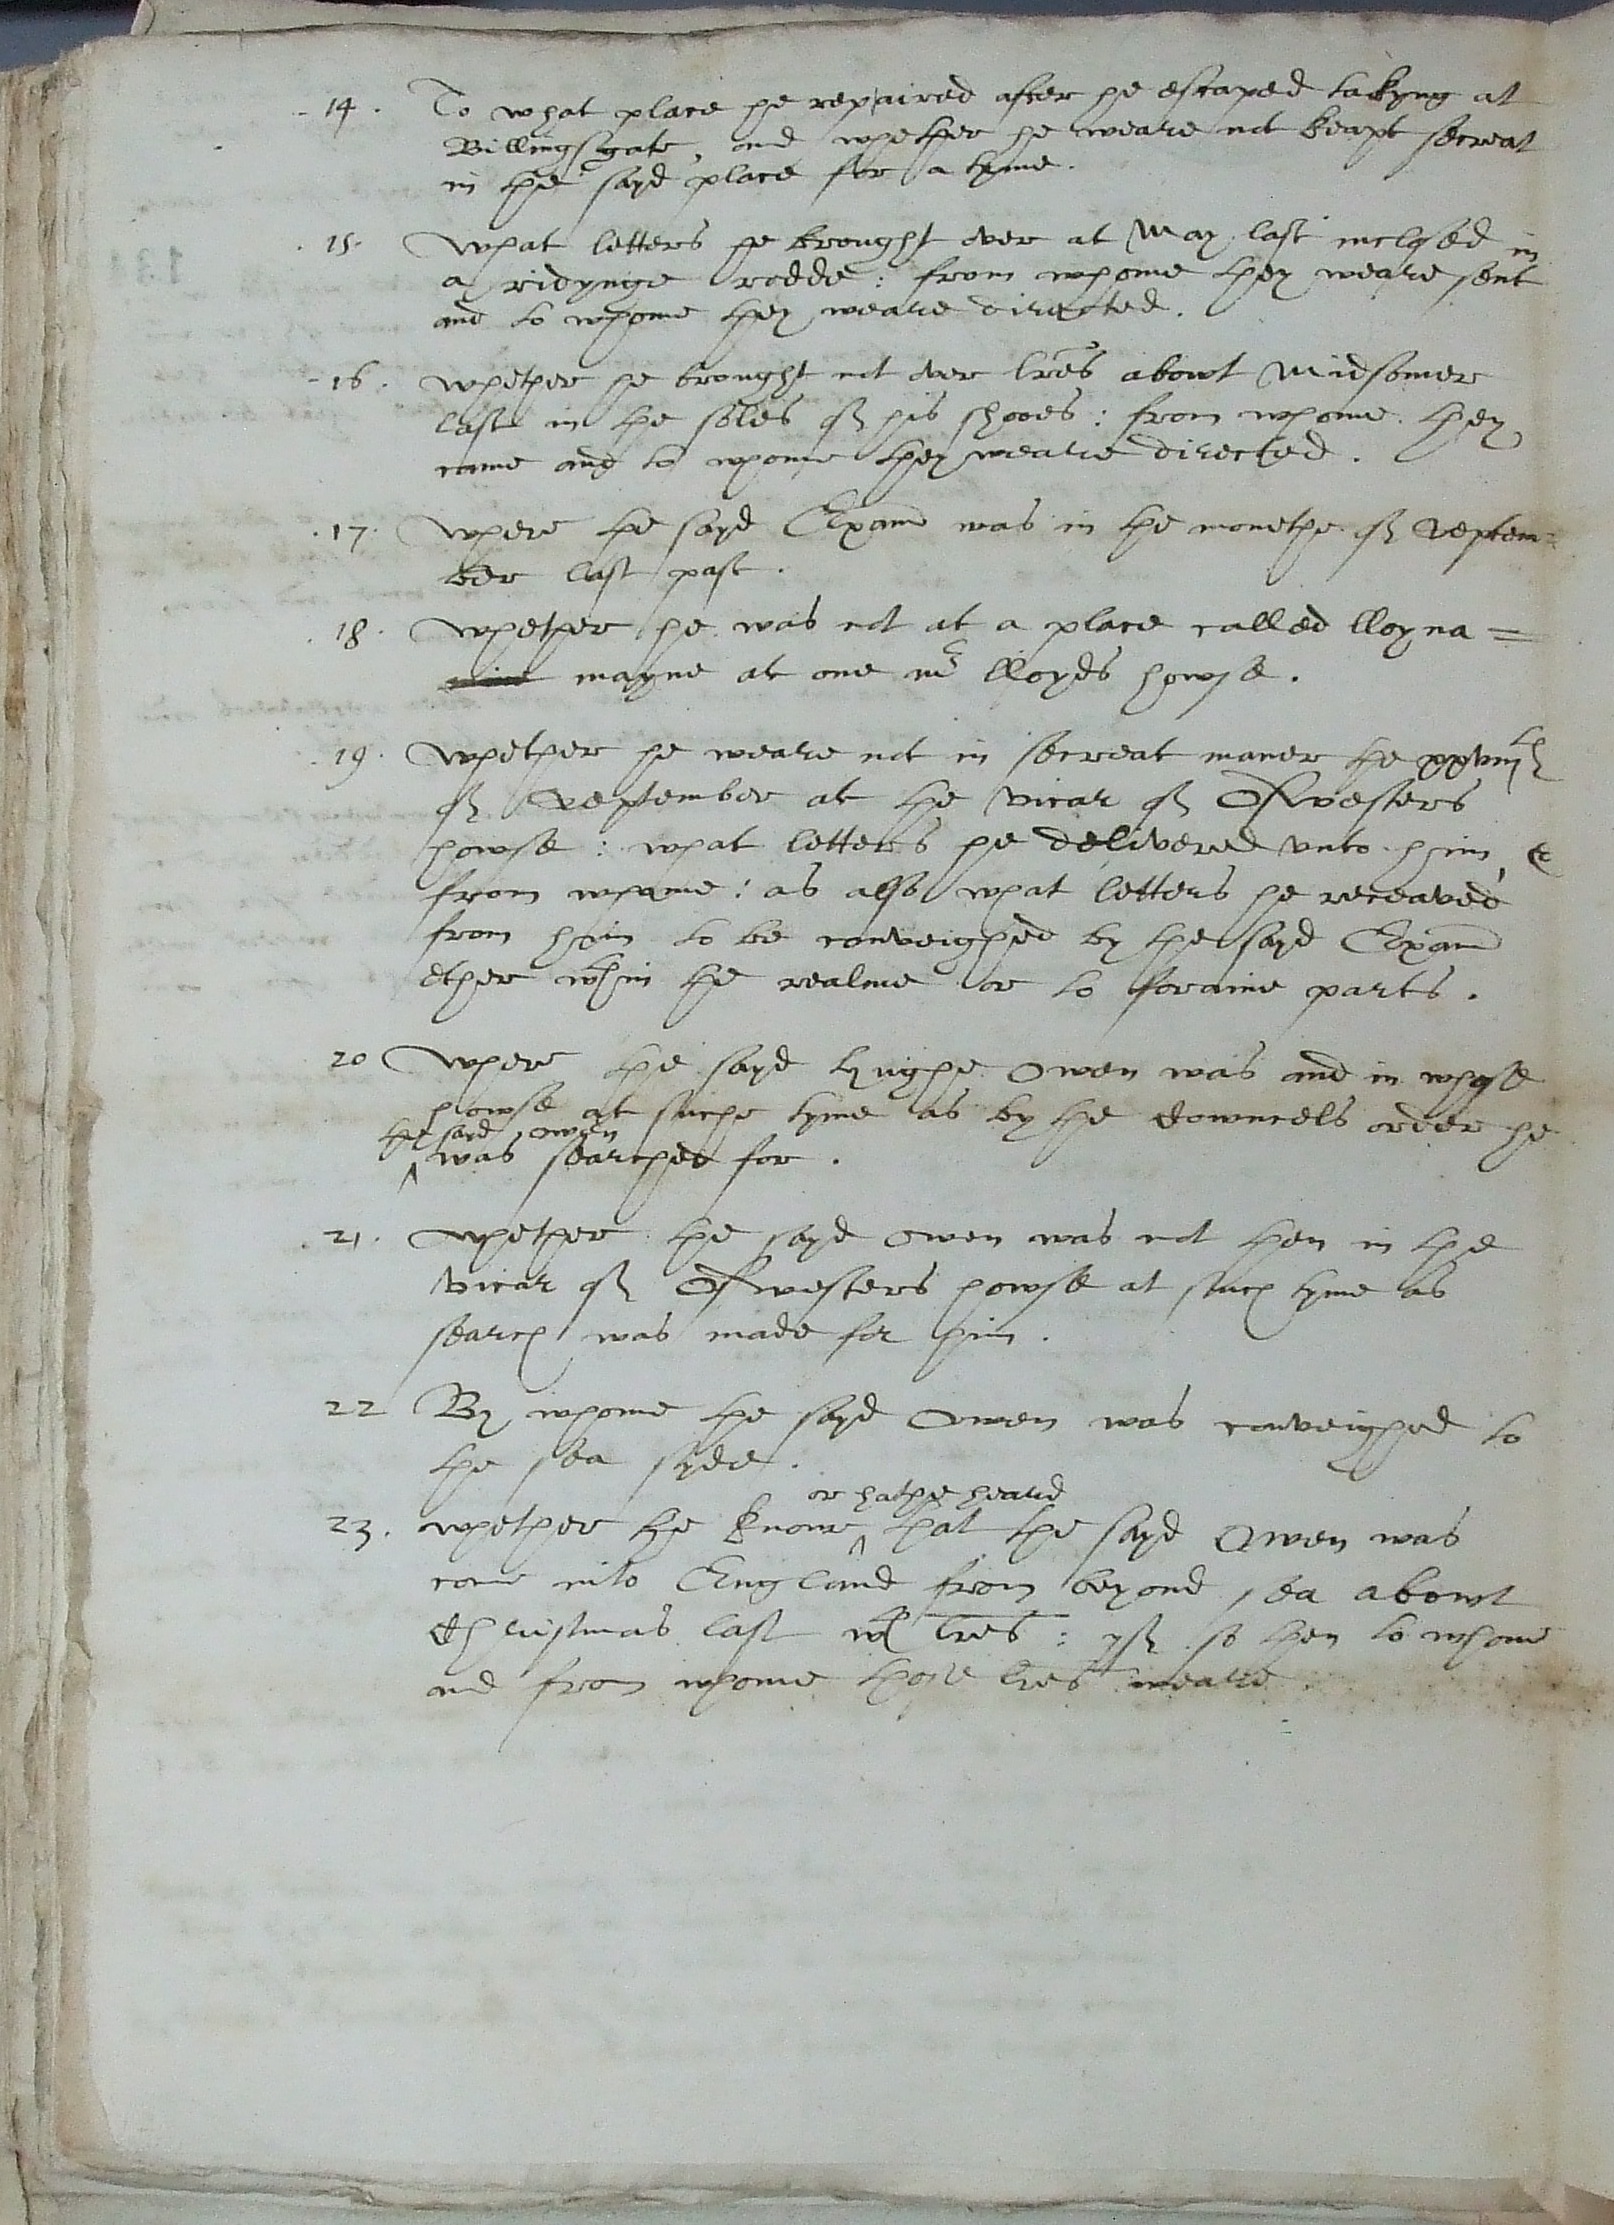 14. To what place he repaired after he escaped takyng at
Billingsgate, and whether he weare not keapt secreat
in the sayd place for a tyme.
15. What letters he brought over at May last inclosed in
a ridynge rodde: from whome they weare sent
and to whome they weare directed.
16. Whether he brought not over lres abowt Midsomer
last in the soles of his shooes: from whome they
came and to whome they weare directed.
17. Where the sayd Exam was in the monethe of Septem=
ber last past.
18. Whether he was not at a place called lloyna=
mayne at one mr lloyds howse.
19. Whether he weare not in secreat maner the xxviijth
of September at the vicar of Oswesters
howse: what letters he delivered unto him, &
from whome: as also what letters he receaved
from him to be conveighed by the sayd Exam
ether wthin the realme or to foraine parts.
20 Where the sayd Hughe Owen was and in whose
howse at suche tyme as by the Cowncels order he
the sayd owen
was searched for.
21. Whether the sayd Owen was not then in the
vicar of Oswesters howse at such tyme as
search was made for him.
22 By whome the sayd Owen was conveighed to
the sea syde.
or hathe heard
23. Whether he knowe that the sayd Owen was
come into England from beyond sea abowt
Christmas last wth lres: yf so then to whome
and from whome those lres weare